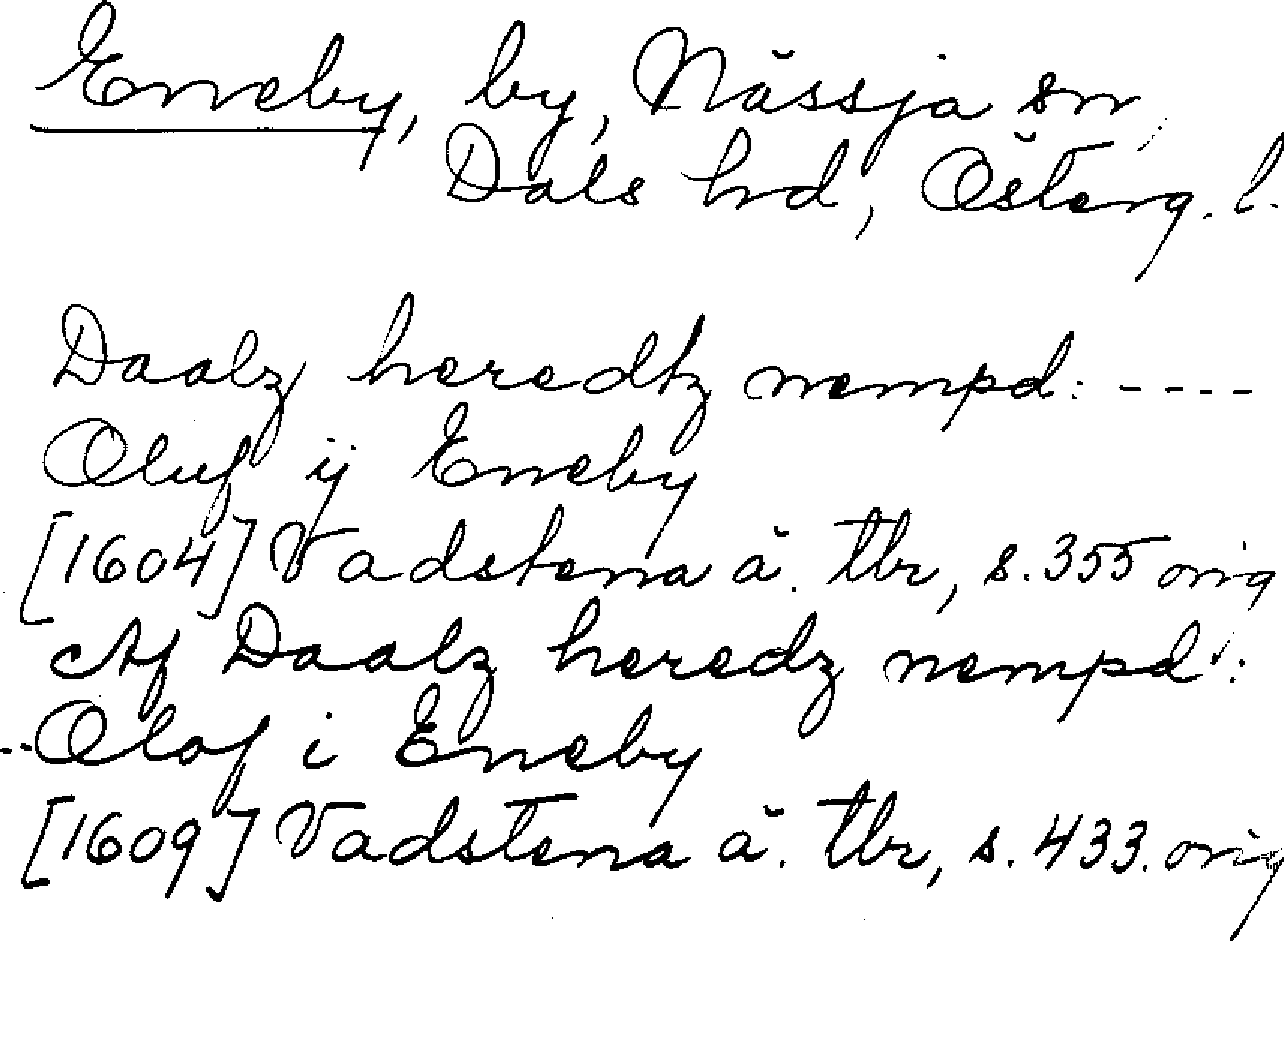 Eneby, by, Nässja sn,
Dals hd, Österg. l.
Daalz heredtz nempd: ----
Oluf ij Eneby
[1604] Vadstena ä. tbr, s. 355 orig
Af Daalz heredz nempd:
--Olof i Eneby
[1609] Vadstena ä. tbr, s. 433. orig